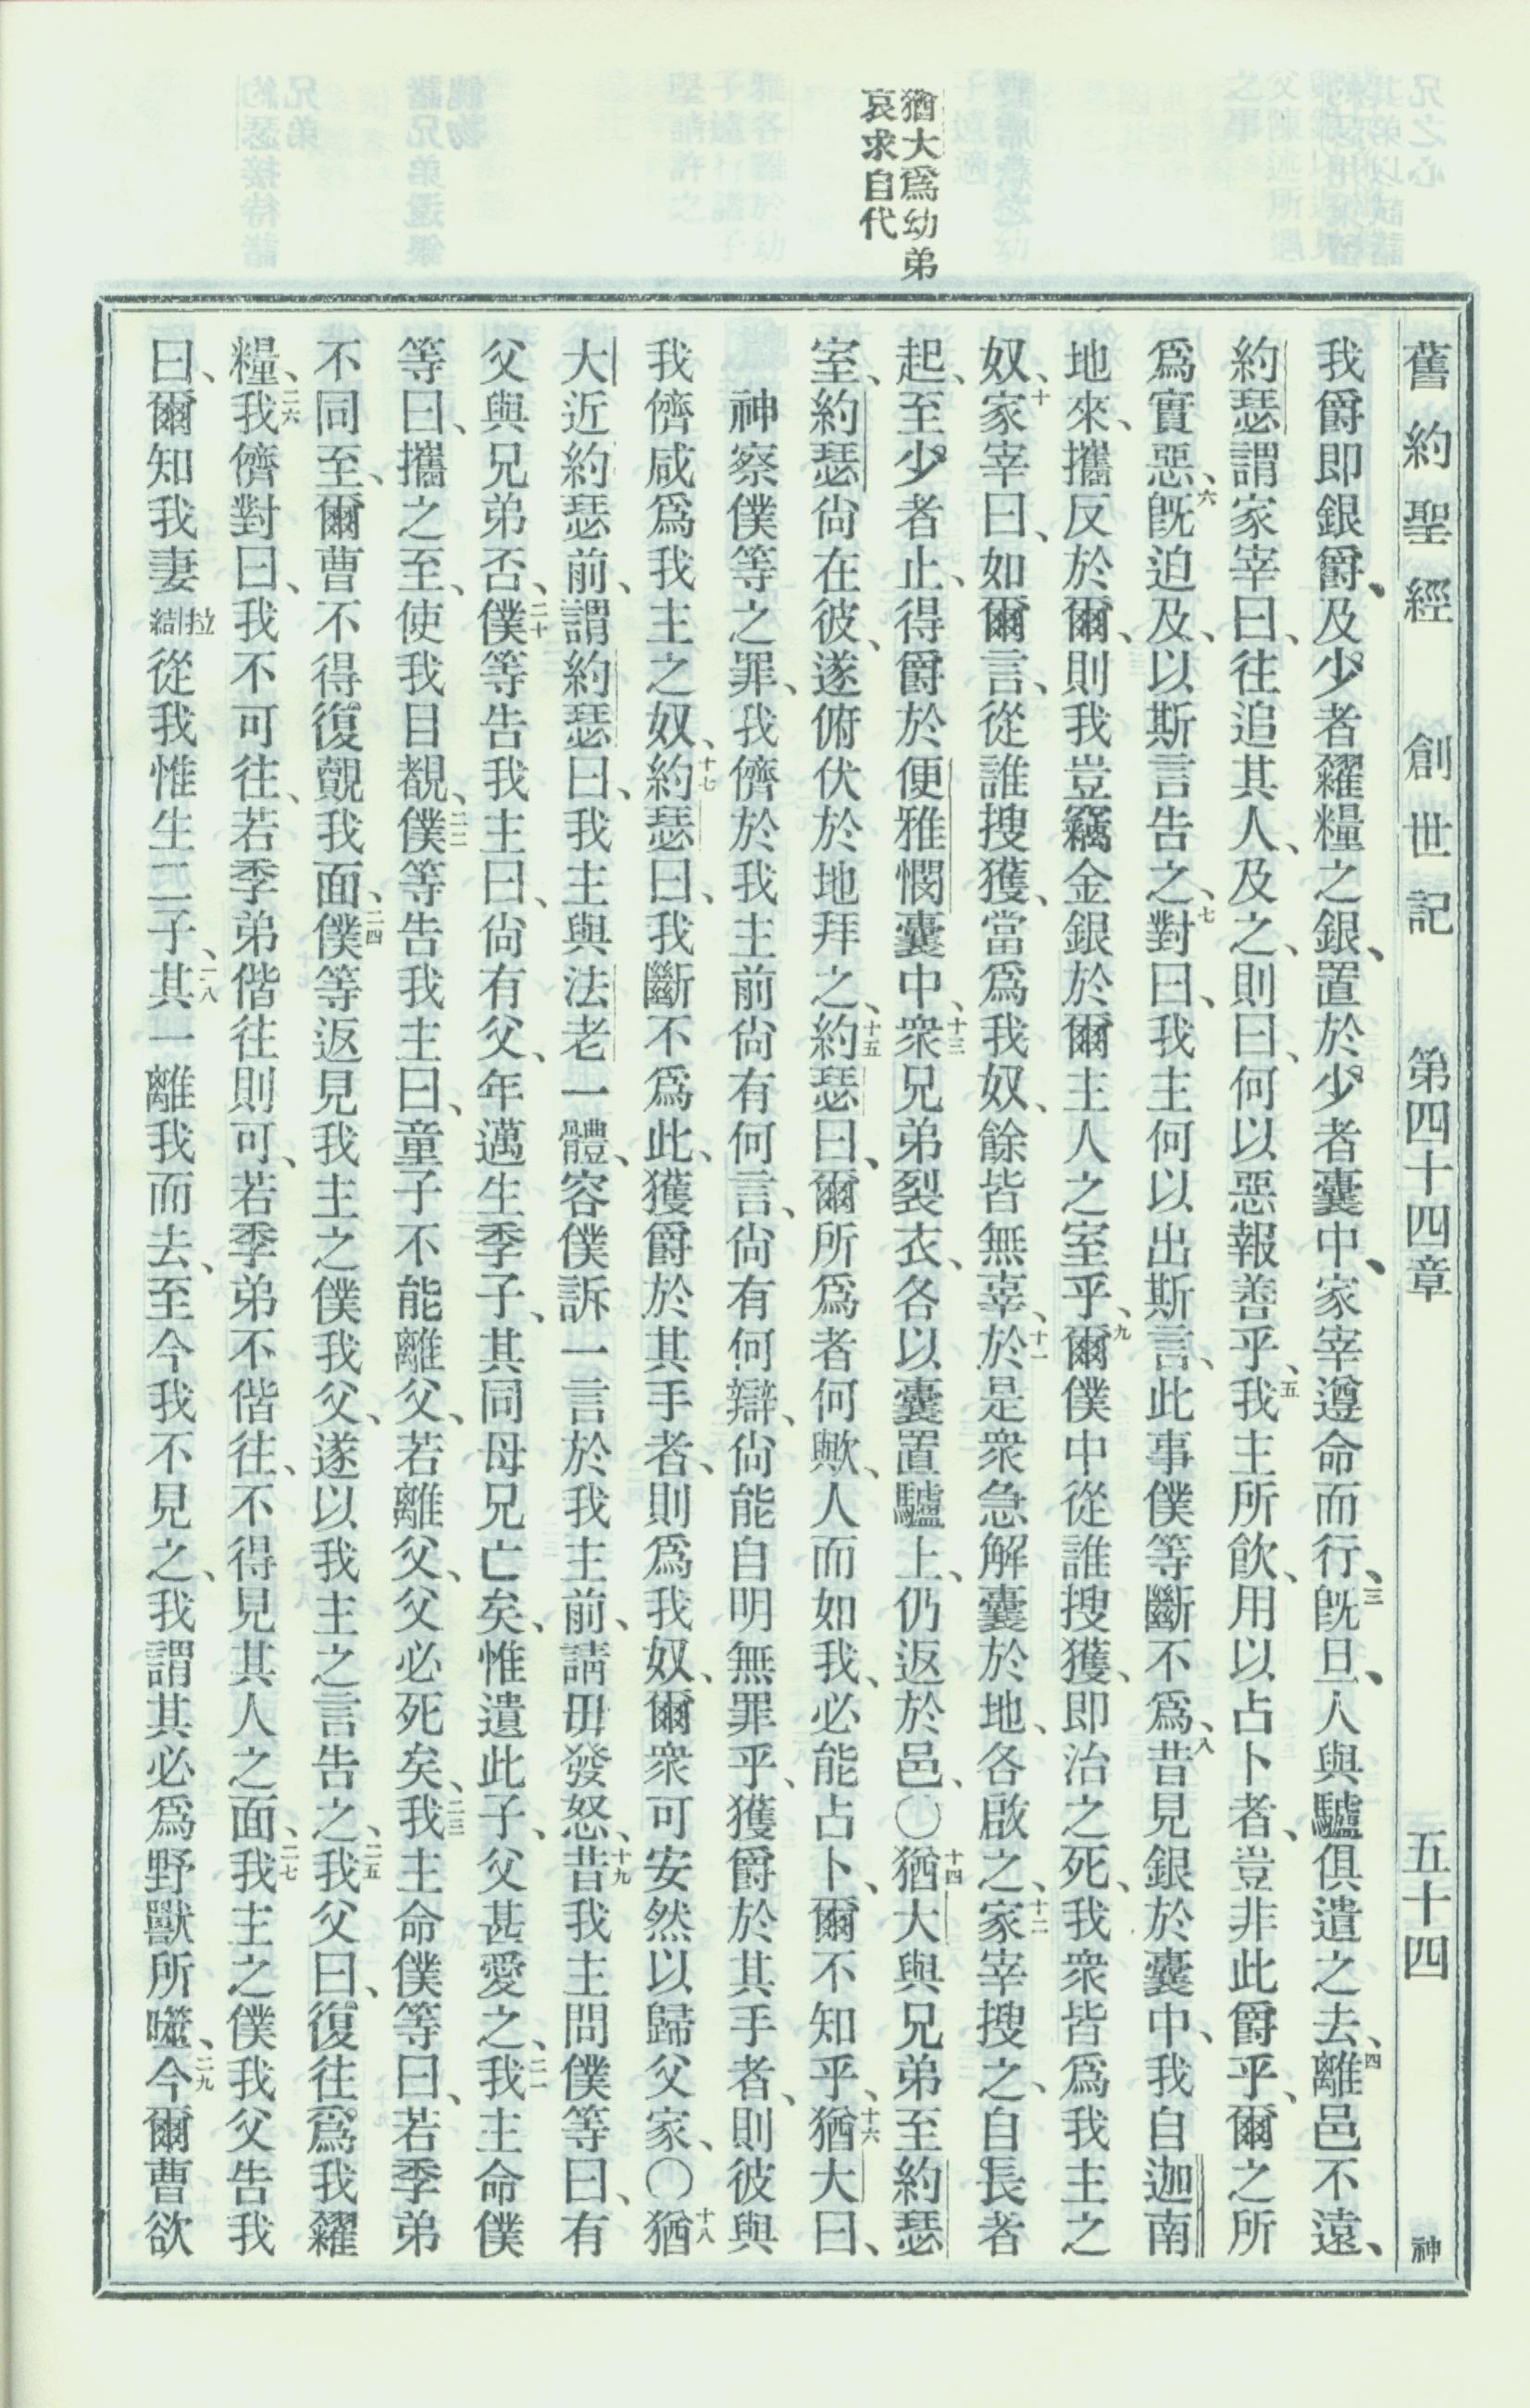 舊約聖經 創世記 第四十四章 五十四 神
我爵即銀爵、及少者糴糧之銀、置於少者囊中、家宰遵命而行、三旣旦、人與驢俱遣之去、四離邑不遠、
約瑟謂家宰曰、往追其人、及之、則曰、何以惡報善乎、五我主所飲、用以占卜者、豈非此爵乎、爾之所
爲實惡、六旣迫及、以斯言告之、七對曰、我主何以出斯言、此事僕等斷不爲、八昔見銀於囊中、我自迦南
地來、攜反於爾、則我豈竊金銀於爾主人之室乎、九爾僕中從誰搜獲、即治之死、我衆皆爲我主之
奴、十家宰曰、如爾言、從誰搜獲、當爲我奴、餘皆無辜、十一於是衆急解囊於地、各啟之、十二家宰搜之、自長者
起、至少者止、得爵於便雅憫囊中、十三衆兄弟裂衣、各以囊置驢上、仍返於邑、〇十四猶大與兄弟至約瑟
室、約瑟尙在彼、遂俯伏於地拜之、十五約瑟曰、爾所爲者何歟、人而如我、必能占卜、爾不知乎、十六猶大曰、
神察僕等之罪、我儕於我主前尙有何言、尙有何辯、尙能自明無罪乎、獲爵於其手者、則彼與
我儕咸爲我主之奴、十七約瑟曰、我斷不爲此、獲爵於其手者、則爲我奴、爾衆可安然以歸父家、〇十八猶
大近約瑟前、謂約瑟曰、我主與法老一體、容僕訴一言於我主前、請毋發怒、十九昔我主問僕等曰、有
父與兄弟否、二十僕等告我主曰、尙有父、年邁生季子、其同母兄亡矣、惟遺此子、父甚愛之、二一我主命僕
等曰、攜之至、使我目覩、二二僕等告我主曰、童子不能離父、若離父、父必死矣、二三我主命僕等曰、若季弟
不同至、爾曹不得復覿我面、二四僕等返見我主之僕我父、遂以我主之言告之、二五我父曰、復往爲我糴
糧、二六我儕對曰、我不可往、若季弟偕往則可、若季弟不偕往、不得見其人之面、二七我主之僕我父告我
曰、爾知我妻拉結從我惟生二子、二八其一離我而去、至今我不見之、我謂其必爲野獸所噬、二九今爾曹欲
猶大爲幼弟
哀求自代